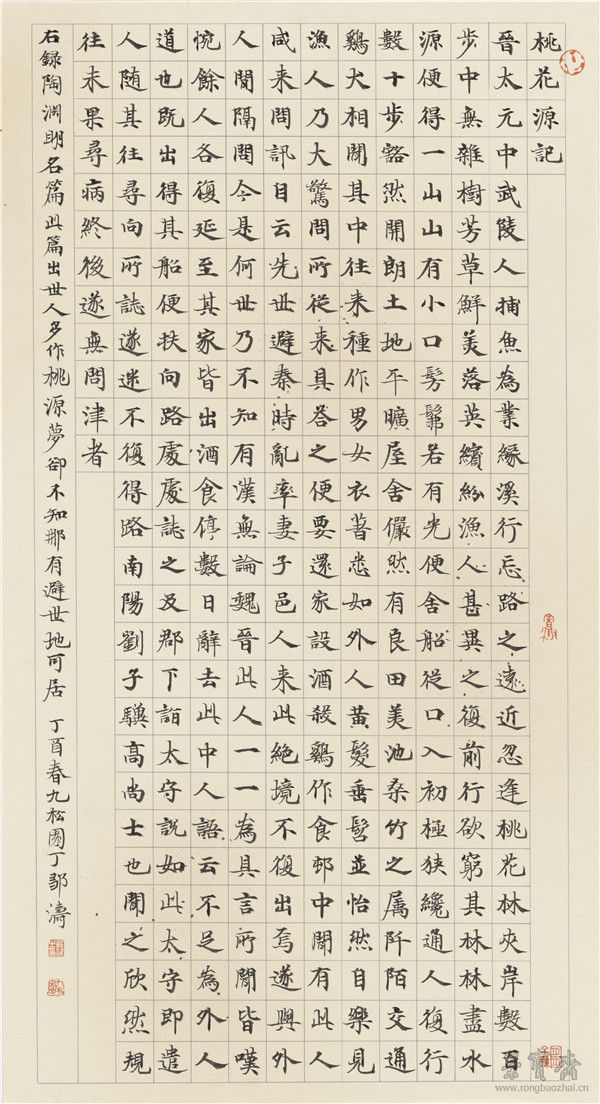 桃花源記
晉太元中武陵人捕魚為業緣溪行忘路之遠近忽逢桃花林夾岸數百
步中無雜樹芳草鮮美落英繽紛漁人甚異之復前行欲窮其林林盡水
源便得一山山有小口髣髴若有光便舍船從口入初極狹纔通人復行
數十步豁然開朗土地平曠屋舍儼然有良田美池桑竹之屬阡陌交通
鷄犬相聞其中往来種作男女衣著悉如外人黃髮垂髫並怡然自樂見
漁人乃大驚問所從来具答之便要還家設酒殺鷄作食邨中聞有此人
咸来問訊自云先世避秦時亂率妻子邑人来此絕境不復出焉遂與外
人間隔問今是何世乃不知有漢無論魏晉此人一一為具言所聞皆嘆
惋餘人各復延至其家皆出酒食停數日辭去此中人語云不足為外人
道也既出得其船便扶向路處處誌之及郡下詣太守說如此太守即遣
人随其往尋向所誌遂迷不復得路南陽劉子驥高尚士也聞之欣然規
往未果尋病終後遂無問津者
右録陶淵明名篇此篇出世人多作桃源夢卻不知那有避世地可居 丁酉春九松園丁鄒濤
榮寶齋
www.rongbaozhai.cn